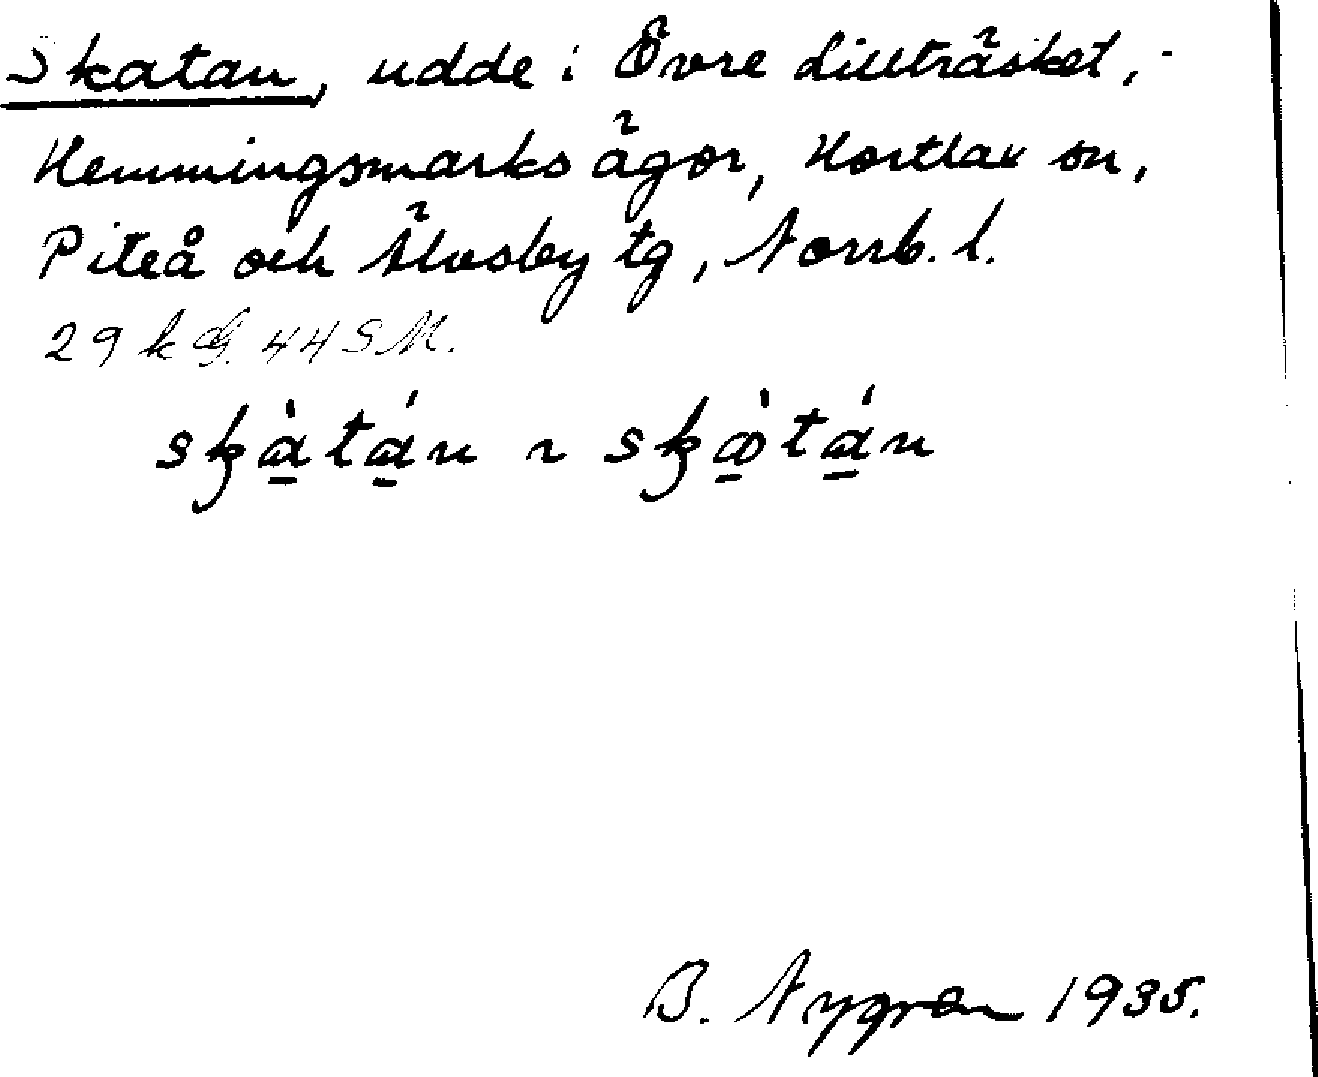 Skatan, udde i Övre Lillträsket,
Hemmingsmarks ägor, Hortlax sn,
Piteå och Älvsby tg, Norrb. l.
29 k 44 SM.
skàtán ~ skòtán
B. Nygren 1935.